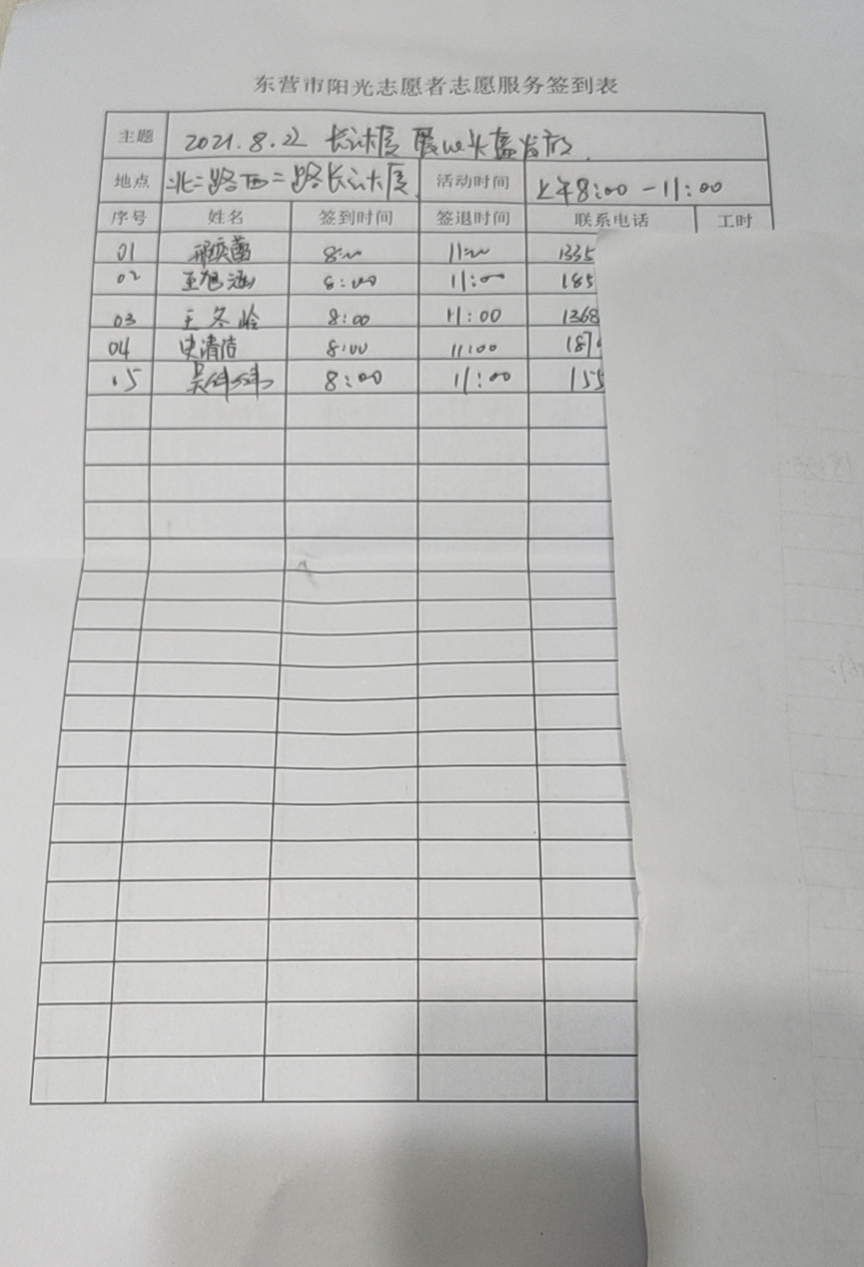 东营市阳光志愿者志愿服务签到表
主题 2021.8.22 长江大厦 爱心头盔发放.
地点 北二路西二路长江大厦 活动时间 上午8:00-11:00
序号 姓名 签到时间 签退时间 联系电话 工时
01 8:00 11:00 1335
02 王旭涵 8:00 11:00 185
03 王冬岭 8:00 11:00 1368
04 史清洁 8:00 11:00 187
05 吴 8:00 11:00 155